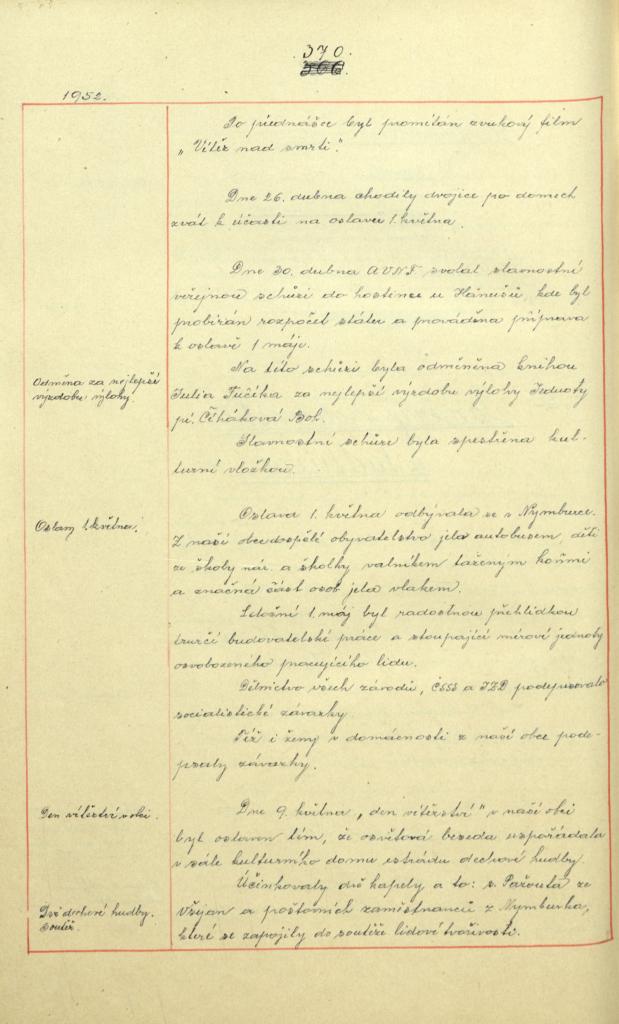 370.
1952.
Po přednášce byl promítán zvukový film
„Vítěz nad smrtí".
Dne 26. dubna chodily dvojice po domech
zvát k účasti na oslavu 1. května.
Dne 30. dubna AVNF svolal slavnostní
veřejnou schůzi do hostince u Hánušů, kde byl
probírán rozpočet státu a prováděna příprava
k oslavě 1 máje.
Odměna za nejlepší
výzdobu výlohy
Na této schůzi byla odměněna knihou
Julia Fučíka za nejlepší výzdobu výlohy Jednoty
pí. Čiháková Boh.
Slavnostní schůze byla zpestřena kul-
turní vložkou.
Oslavy 1. května.
Oslava 1. května odbývala se v Nymburce.
Z naší obce dospělé obyvatelstvo jelo autobusem, děti
ze školy nár. a školky valníkem taženým koňmi
a značná část osob jela vlakem.
Letošní 1. máj byl radostnou přehlídkou
tvůrčí budovatelské práce a stoupající mírové jednoty
osvobozeného pracujícího lidu.
Dělnictvo všech závodů, ČSSS a JZD podepisovalo
socialistické závazky.
Též i ženy v domácnosti z naší obce pode-
psaly závazky.
Den vítězství v obci.
Dne 9. května „den vítězství" v naší obci
byl oslaven tím, že osvětová beseda uspořádala
v sále kulturního domu estrádu dechové hudby.
Dvě dechové hudby.
Soutěž.
Účinkovaly dvě kapely a to: s. Pařouta ze
Všejan a poštovních zaměstnanců z Nymburka,
které se zapojily do soutěže lidové tvořivosti.